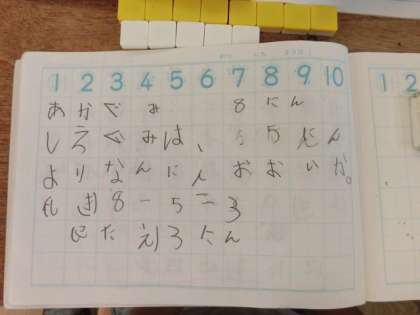 1 2 3 4 5 6 7 8 9 10
あかぐみ 8にん
しろぐみは、 5にん
よりなんにんおおいか。
しき 8-5=3
こたえ 3にん
1 2